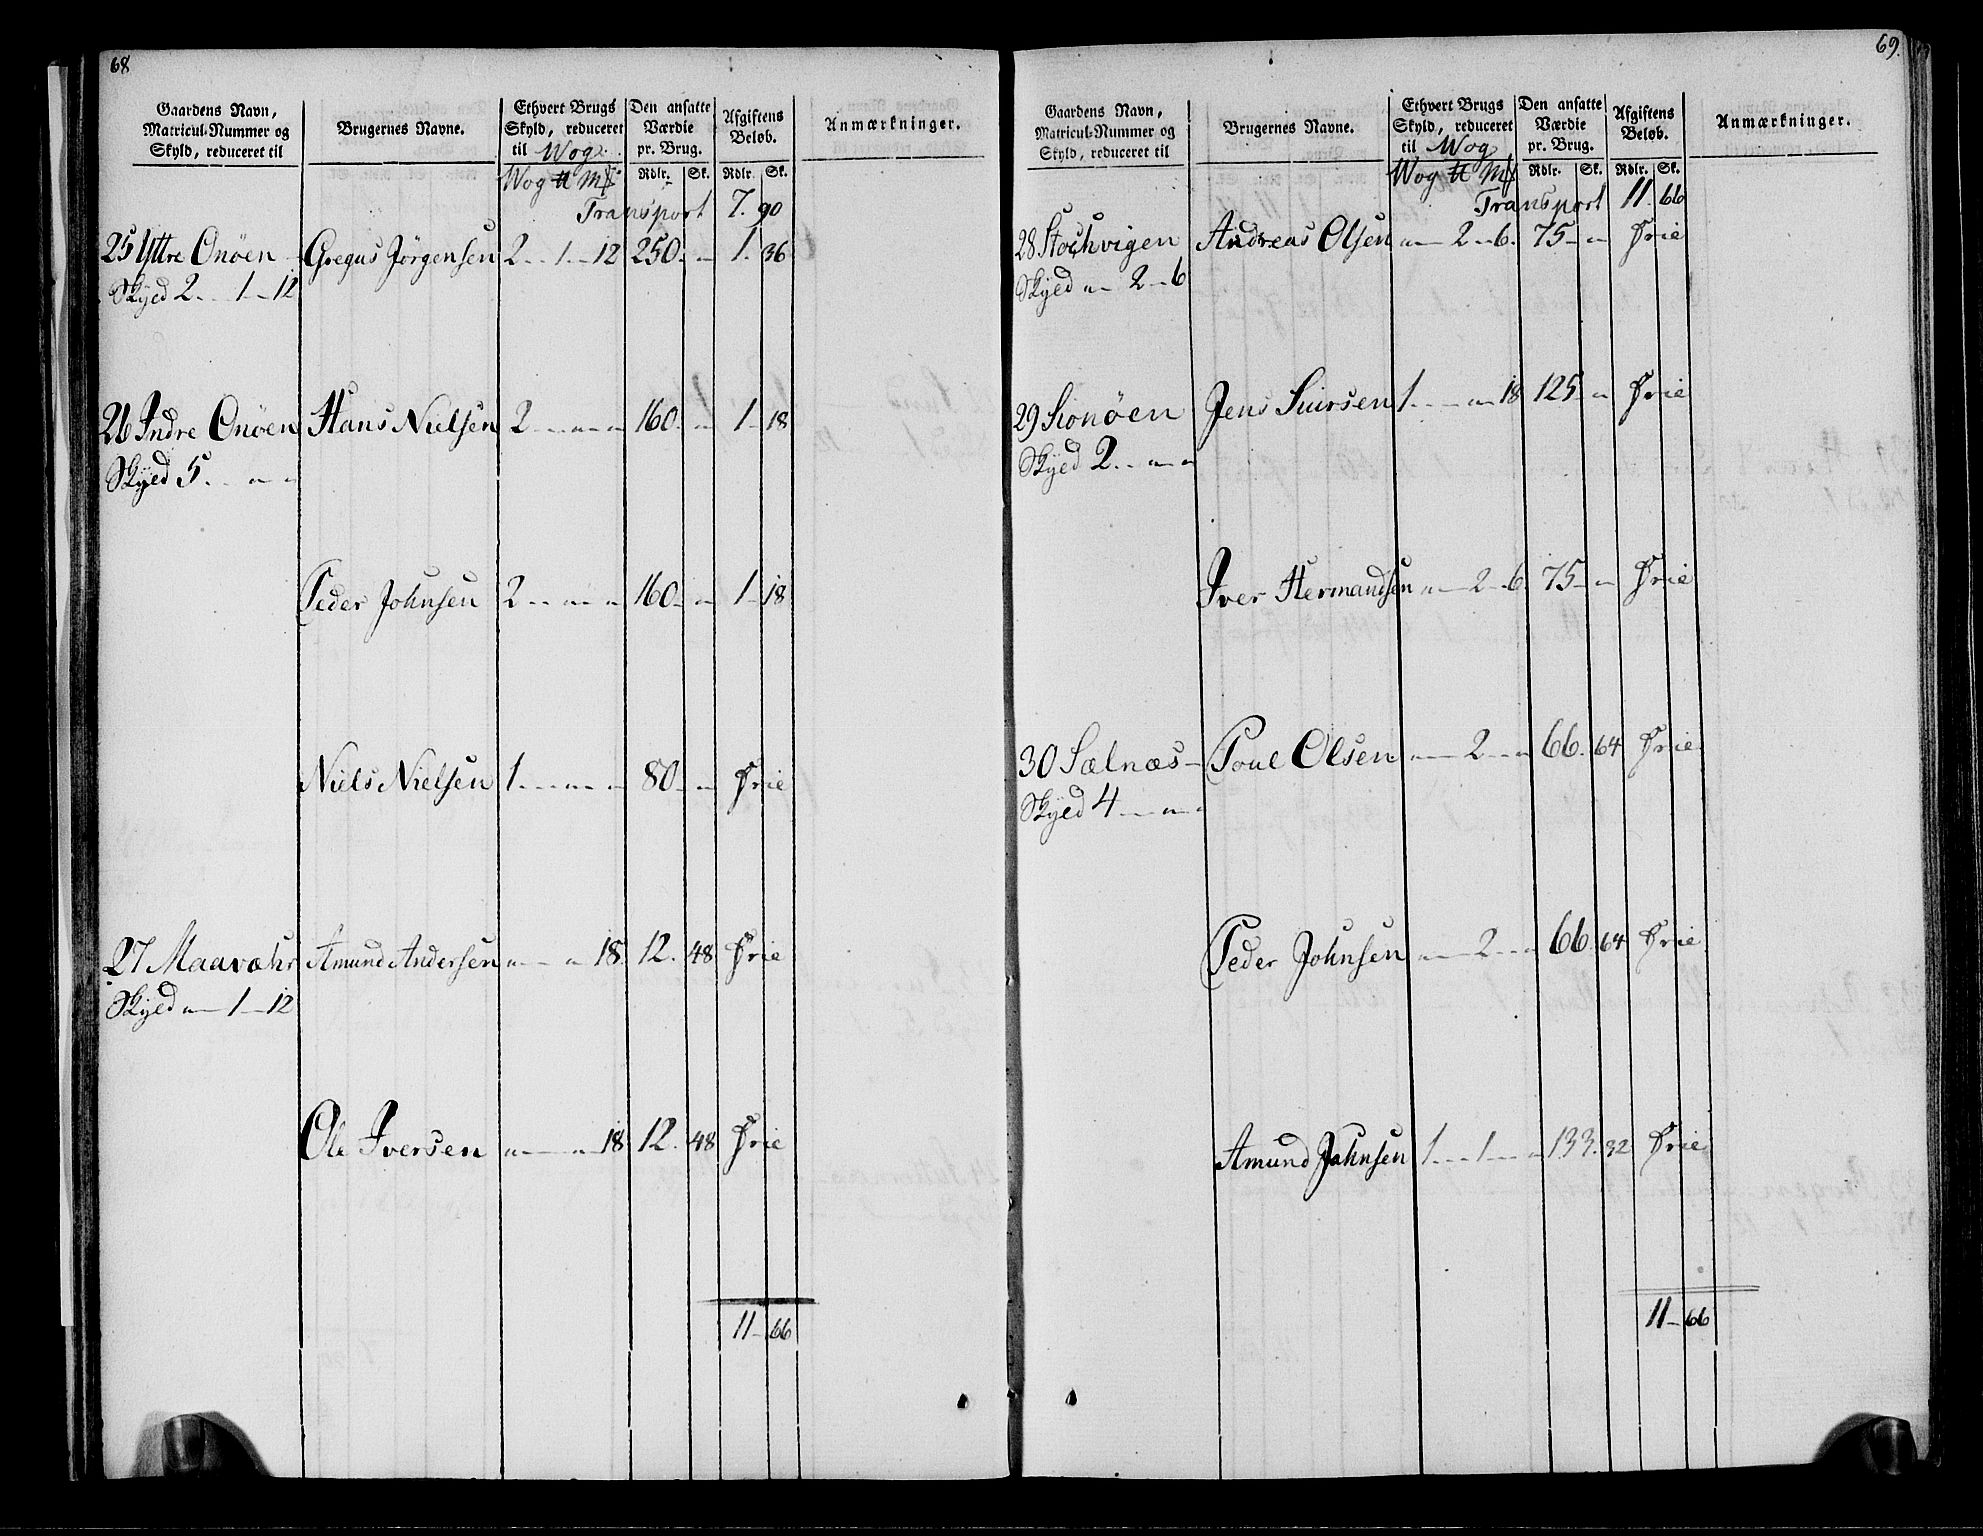 68
Gaardens Navn, Matricul-Nummer og Skyld, reduceret til
Brugernes Navne.
Ethvert Brugs Skyld, reduceret til Wog.
Den ansatte Værdie pr. Brug.
Afgiftens Beløb.
Anmærkninger.
Wog ℔ Mk Rdlr. Sk. Rdlr. Sk.
Transport 7. 90
25 Yttre Onöen Gregus Jörgensen 2 - 1 - 12 250 - „ 1. 36
Skyed 2 - 1 - 12
26 Indre Onöen Hans Nielsen 2 - „ - „ 160 - „ 1 - 18
Skyed 5 - „ - „
Peder Johnsen 2 - „ - „ 160 - „ 1 - 18
Niels Nielsen 1 - „ - „ 80 - „ Frie
27 Maavæhr Amund Andersen „ - „ 18. 12. 48 Frie
Skyed „ - 1 - 12
Ole Iversen „ - „ 18 12. 48 Frie
11 - 66
69.
Gaardens Navn, Matricul-Nummer og Skyld, reduceret til
Brugernes Navne.
Ethvert Brugs Skyld, reduceret til Wog
Den ansatte Værdie pr. Brug.
Afgiftens Beløb.
Anmærkninger.
Wog ℔ Mk Rdlr. Sk. Rdlr. Sk.
Transport 11. 66
28 Stochvigen Andreas Olsen „ - 2 - 6. 75 - „ Frie
Skyed „ - 2 - 6
29 Sionöen Jens Siursen 1 - „ - 18 125 - „ Frie
Skyed 2 - „ - „
Iver Hermandsen „ - 2 - 6. 75 - „ Frie
30 Sælnæs - Poul Olsen „ - 2 - „ 66. 64 Frie
Skyed 4 - „ - „
Peder Johnsen „ - 2 - „ 66. 64 Frie
Amund Johnsen 1 - 1 - „ 133. 32 Frie
11 - 66